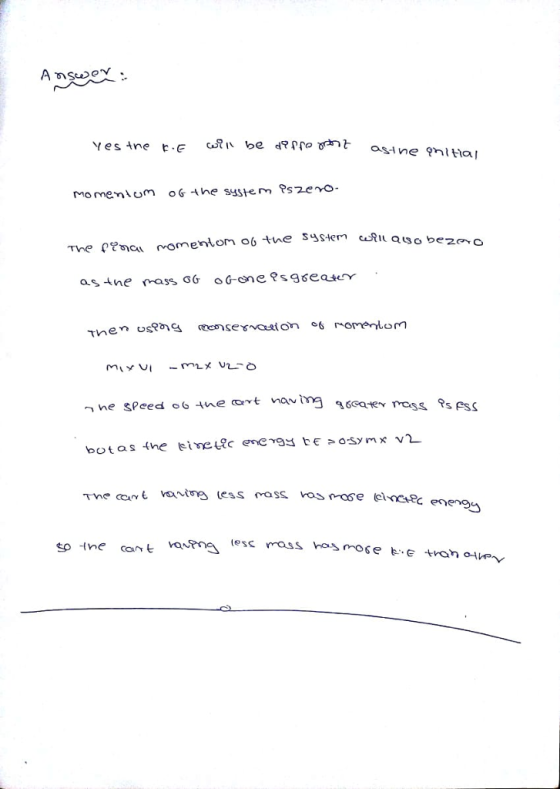 Answer :
Yes the K.E will be different as the initial
momentum of the system is zero.
The final momentum of the system will also be zero
as the mass of of one is greater
Then using conservation of momentum
m1 x v1 - m2 x v2 = 0
The speed of the cart having greater mass is less
but as the kinetic energy KE = 0.5 x m x v2
The cart having less mass has more kinetic energy
so the cart having less mass has more K.E than other